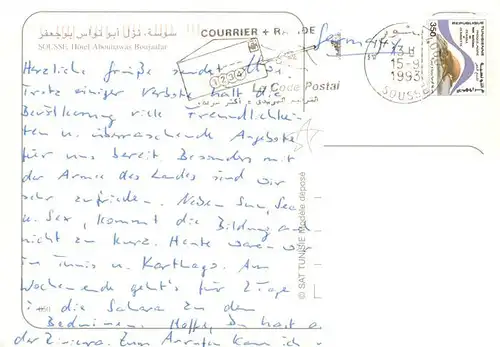 سوسة - نزل أبو نواس بوجعفر
SOUSSE, Hôtel Abounawas Boujaafar
COURRIER + RAPIDE
Germany
Herzliche Grüße sendet
Trotz einiger Verbote hält die
Bevölkerung viele Freundlichkei-
ten u. überraschende Angebote
für uns bereit. Besonders mit
der Armee des Landes sind wir
sehr zufrieden. Neben Sun, Sea
u. Sex, kommt die Bildung a
nicht zu kurz. Heute waren wir
in Tunis u. Karthago. Am
Wochenende geht's für 2 Tage
in die Sahara zu den
Beduinen. Hoffe, Du hast a
der Riviera. Zum Anrufen kann ich
0234
Le Code Postal
13H
15-9
1993
SOUSSE
350
© SAT TUNISIE Modèle déposé